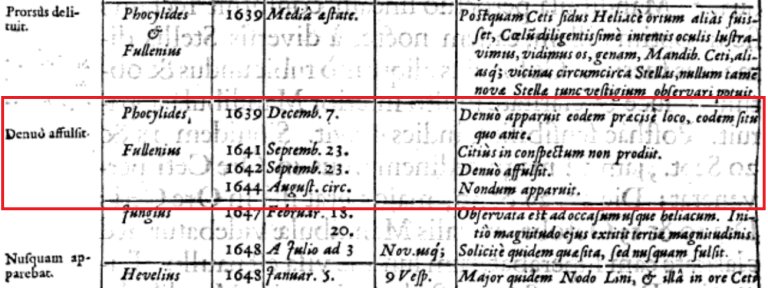 Prorsùs deli- Phocylides 1639 Mediâ æstate. Postquam Ceti sidus Heliacè ortum aliàs fuis-
tuit. & set, Cœlũ diligentissimè intentis oculis lustra-
Fullenius vimus, vidimus os, genam, Mandib. Ceti, ali-
asq; vicinas circumcirca Stellas, nullum tamẽ
novæ Stellæ tunc vestigium observari potuit.
Phocylides, 1639 Decemb. 7. Denuò apparuit eodem præcisè loco, eodem situ
Denuò affulsit. quo ante.
Fullenius 1641 Septemb. 23. Citiùs in conspectum non prodiit.
1642 Septemb. 23. Denuò affulsit.
1644 August. circ. Nondum apparuit.
Jungius 1647 Februar. 18. Observata est ad occasum usque heliacum. Ini-
20. tio magnitudo ejus extitit tertiæ magnitudinis.
1648 A Julio ad 3 Nov. usq; Solicitè quidem quæsita, sed nusquam fulsit.
Nusquam ap-
parebat. Hevelius 1648 Januar. 5. 9 Vesp. Major quidem Nodo Lini, & illâ in ore Ceti